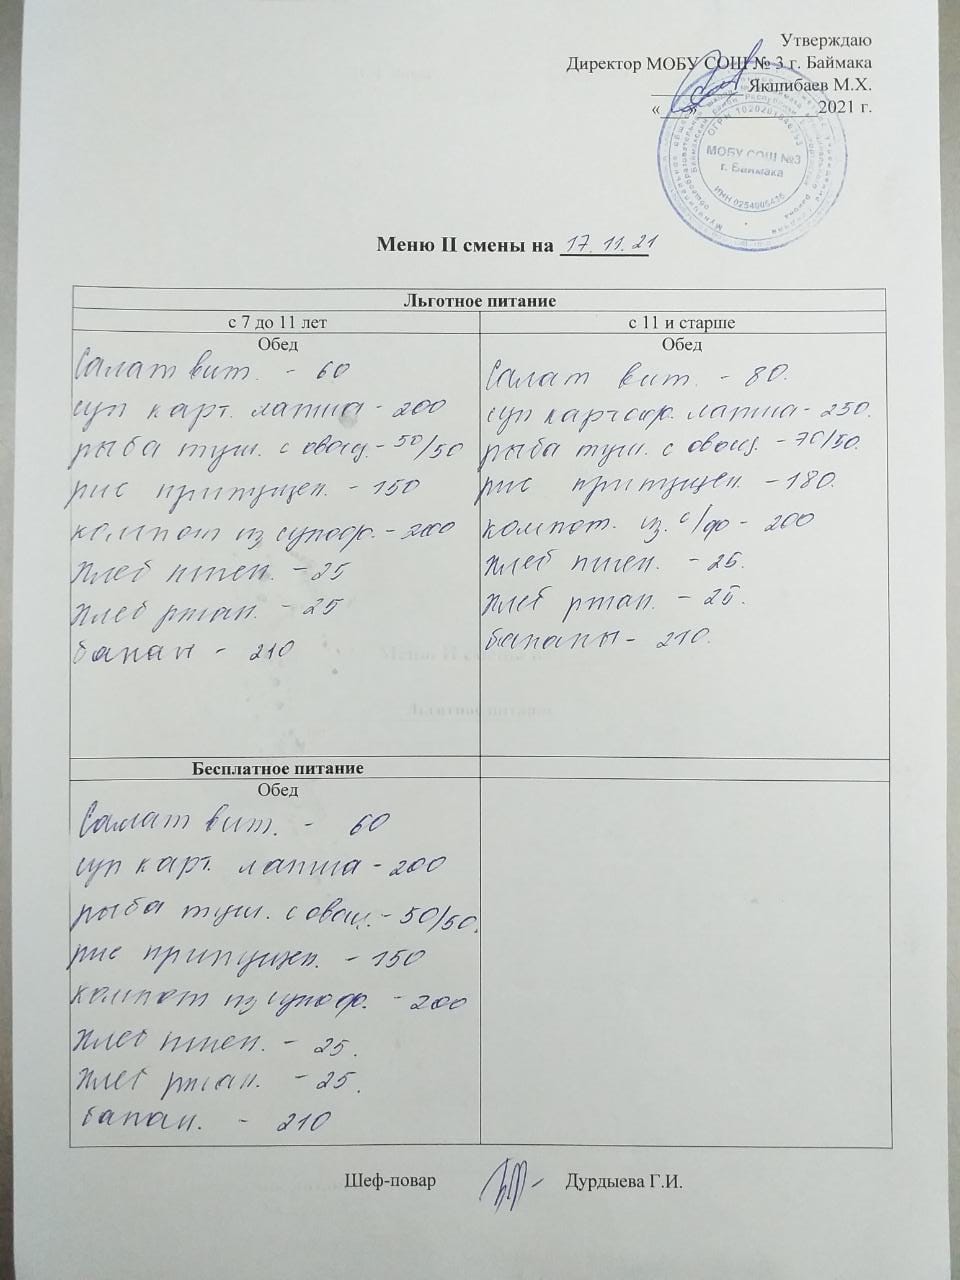 Утверждаю
Директор МОБУ СОШ № 3 г. Баймака
Якшибаев М.Х.
« » 2021 г.
МОБУ СОШ №3
г. Баймака
Меню II смены на 17. 11. 21
Льготное питание
с 7 до 11 лет
Обед
Салат вит. - 60
суп карт. лапша - 200
рыба туш. с овощ. - 50/50
рис припущен. - 150
компот из сухофр. - 200
хлеб пшен. - 25
хлеб ржан. - 25
банан - 210
с 11 и старше
Обед
Салат вит. - 80.
суп картоф. лапша - 250.
рыба туш. с овощ. - 70/50.
рис припущен. - 180.
компот. из. с/фр - 200
хлеб пшен. - 25.
хлеб ржан. - 25.
бананы - 210.
Бесплатное питание
Обед
Салат вит. - 60
суп карт. лапша - 200
рыба туш. с овощ. - 50/50.
рис припущен. - 150
компот из сухофр. - 200
хлеб пшен. - 25.
хлеб ржан. - 25.
банан. - 210
Шеф-повар Дурдыева Г.И.